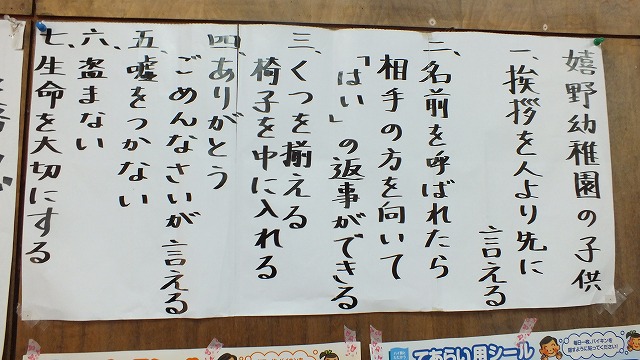 嬉野幼稚園の子供
一、挨拶を人より先に
言える
二、名前を呼ばれたら
相手の方を向いて
「はい」の返事ができる
三、くつを揃える
椅子を中に入れる
四、ありがとう
ごめんなさいが言える
五、嘘をつかない
六、盗まない
七、生命を大切にする
てあらい用シール
毎日一枚、バイキンを
隠すように貼ってください!